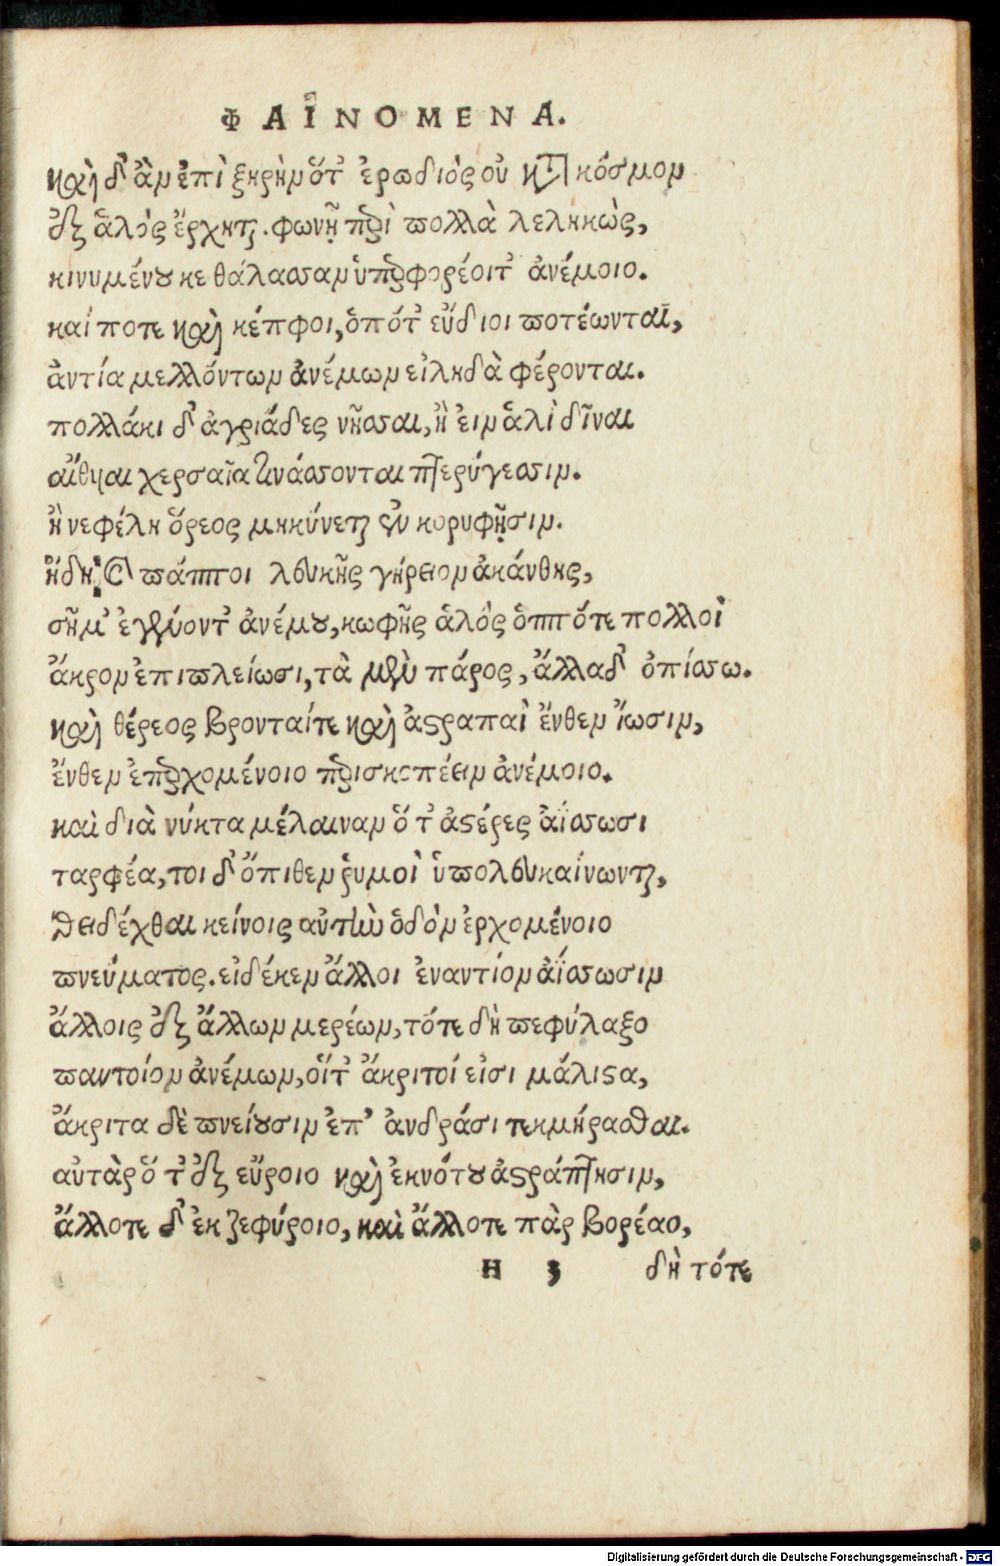 ΦΑΙΝΟΜΕΝΑ.
καὶ δ' ἂν ἐπὶ ξηρὴν ὅτ' ἐρωδιὸς οὐ κατὰ κόσμον
ἐξ ἁλὸς ἔρχηται. φωνῇ περὶ πολλὰ λεληκὼς,
κινυμένου κε θάλασσαν ὑπερφορέοιτ' ἀνέμοιο.
καί ποτε καὶ κέπφοι, ὁπότ' εὔδιοι ποτέωνται,
ἀντία μελλόντων ἀνέμων εἰληδὰ φέρονται.
πολλάκι δ' ἀγριάδες νῆσσαι, ἢ ειν ἁλὶ δῖναι
αἴθυιαι χερσαῖα τινάσσονται πτερύγεσσιν.
ἢ νεφέλη ὄρεος μηκύνεται ἐν κορυφῇσιν.
ἤδη καὶ πάπποι λευκῆς γήρειον ἀκάνθης,
σῆμ' ἐγένοντ' ἀνέμου, κωφῆς ἁλὸς ὁππότε πολλοὶ
ἄκρον ἐπιπλείωσι, τὰ μὲν πάρος, ἄλλα δ' ὀπίσσω.
καὶ θέρεος βρονταίτε καὶ ἀστραπαὶ ἔνθεν ἴωσιν,
ἔνθεν ἐπερχομένοιο περισκοπέειν ἀνέμοιο.
καὶ διὰ νύκτα μέλαιναν ὅτ' ἀστέρες ἀΐσσωσι
ταρφέα, τοι δ' ὄπιθεν ῥυμοὶ ὑπολευκαίνωνται,
δειδέχθαι κείνοις αὐτὴν ὁδὸν ἐρχομένοιο
πνεύματος. εἰδέκεν ἄλλοι ἐναντίον ἀΐσσωσιν
ἄλλοις ἐξ ἄλλων μερέων, τότε δὴ πεφύλαξο
παντοίον ἀνέμων, οἵτ' ἄκριτοί εἰσι μάλιστα,
ἄκριτα δὲ πνείουσιν ἐπ' ἀνδράσι τεκμήρασθαι.
αὐτὰρ ὅτ' ἐξ εὔροιο καὶ ἐκνότου ἀστράπτησιν,
ἄλλοτε δ' ἐκ ζεφύροιο, καὶ ἄλλοτε πὰρ βορέαο,
Η 3 δὴ τότε
Digitalisierung gefördert durch die Deutsche Forschungsgemeinschaft - DFG